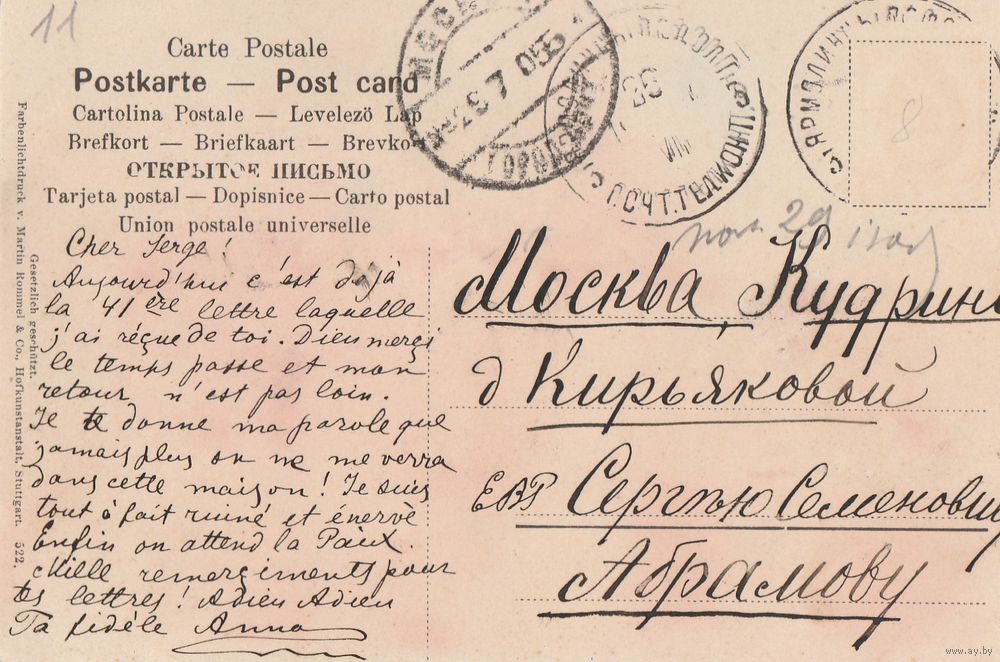 11
Carte Postale
Postkarte — Post card
Cartolina Postale — Levelezö Lap
Brefkort — Briefkaart — Brevkort
ОТКРЫТОЕ ПИСЬМО
Tarjeta postal — Dopisnice — Carto postal
Union postale universelle
Farbenlichtdruck v. Martin Rommel & Co., Hofkunstanstalt, Stuttgart. 522.
Gesetzlich geschützt.
МОСКВА
8
Cher Serge!
Aujourd'hui c'est dejà
la 41ère lettre laquelle
j'ai réçue de toi. Dieu merçi
le temps passe et mon
retour n'est pas loin.
Je te donne ma parole que
jamais plus on ne me verra
dans cette maison! Je suis
tout à fait ruiné et énervé
Enfin on attend la Paux.
Mille remerçiments pour
tes lettres! Adieu Adieu
Ta fidèle Anna
Москва, Кудрино
д Кирьяковой
ЕВР Сергѣю Семеновичу
Абрамову
www.ay.by